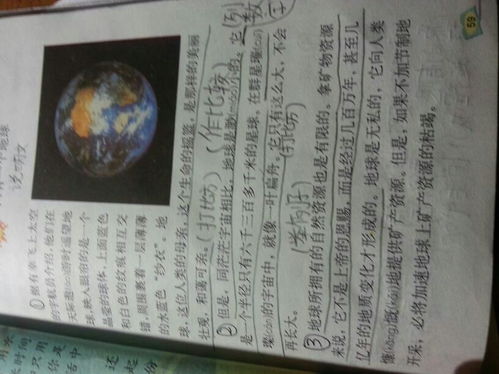 个地球
说明文
①据有幸飞上太空
的宇航员介绍,他们在
天际遨(áo)游时遥望地
球,映入眼帘的是一个
晶莹的球体,上面蓝色
和白色的纹痕相互交
错,周围裹着一层薄薄
的水蓝色“纱衣”。地
球,这位人类的母亲,这个生命的摇篮,是那样的美丽
壮观,和蔼可亲。(打比方)(作比较)(列数字)
②但是,同茫茫宇宙相比,地球是渺(miǎo)小的。它
是一个半径只有六千三百多千米的星球。在群星璀(cuǐ)
璨(càn)的宇宙中,就像一叶扁舟。它只有这么大,不会
再长大。(举例子)(打比方)
③地球所拥有的自然资源也是有限的。拿矿物资源
来说,它不是上帝的恩赐,而是经过几百万年,甚至几
亿年的地质变化才形成的。地球是无私的,它向人类
慷(kāng)慨(kǎi)地提供矿产资源。但是,如果不加节制地
开采,必将加速地球上矿产资源的枯竭。
59